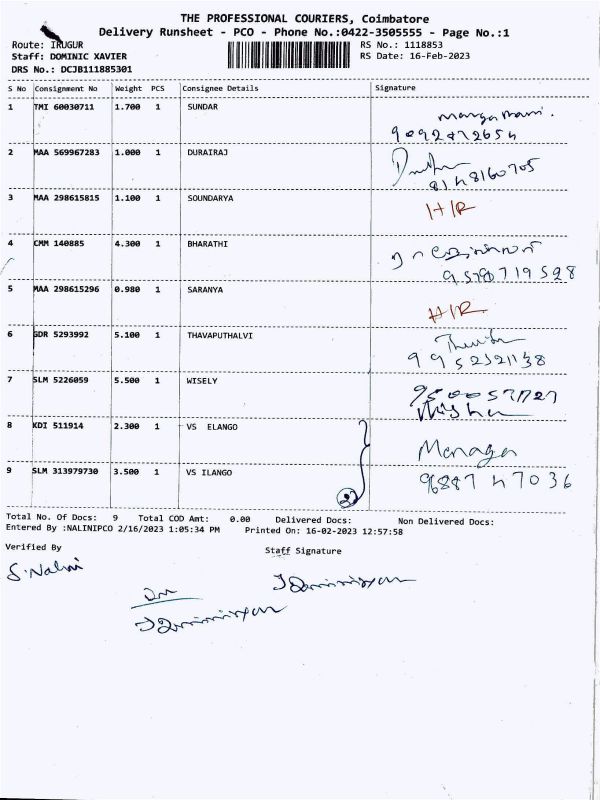 THE PROFESSIONAL COURIERS, Coimbatore
Delivery Runsheet - PCO - Phone No.:0422-3505555 - Page No.:1
Route: IRUGUR
RS No.: 1118853
Staff: DOMINIC XAVIER
RS Date: 16-Feb-2023
DRS No.: DCJB111885301
S No Consignment No Weight PCS Consignee Details Signature
1 TMI 60030711 1.700 1 SUNDAR
9092872654
2 MAA 569967283 1.000 1 DURAIRAJ
8148160705
3 MAA 298615815 1.100 1 SOUNDARYA H/R
4 CMM 140885 4.300 1 BHARATHI
9578719528
5 MAA 298615296 0.980 1 SARANYA
H/R
6 GDR 5293992 5.100 1 THAVAPUTHALVI
9952321138
7 SLM 5226059 5.500 1 WISELY
8 KDI 511914 2.300 1 VS ELANGO
Manager
9 SLM 313979730 3.500 1 VS ILANGO 9688747036
22
Total No. Of Docs: 9 Total COD Amt: 0.00 Delivered Docs: Non Delivered Docs:
Entered By :NALINIPCO 2/16/2023 1:05:34 PM Printed On: 16-02-2023 12:57:58
Verified By
Staff Signature
S. Nalini